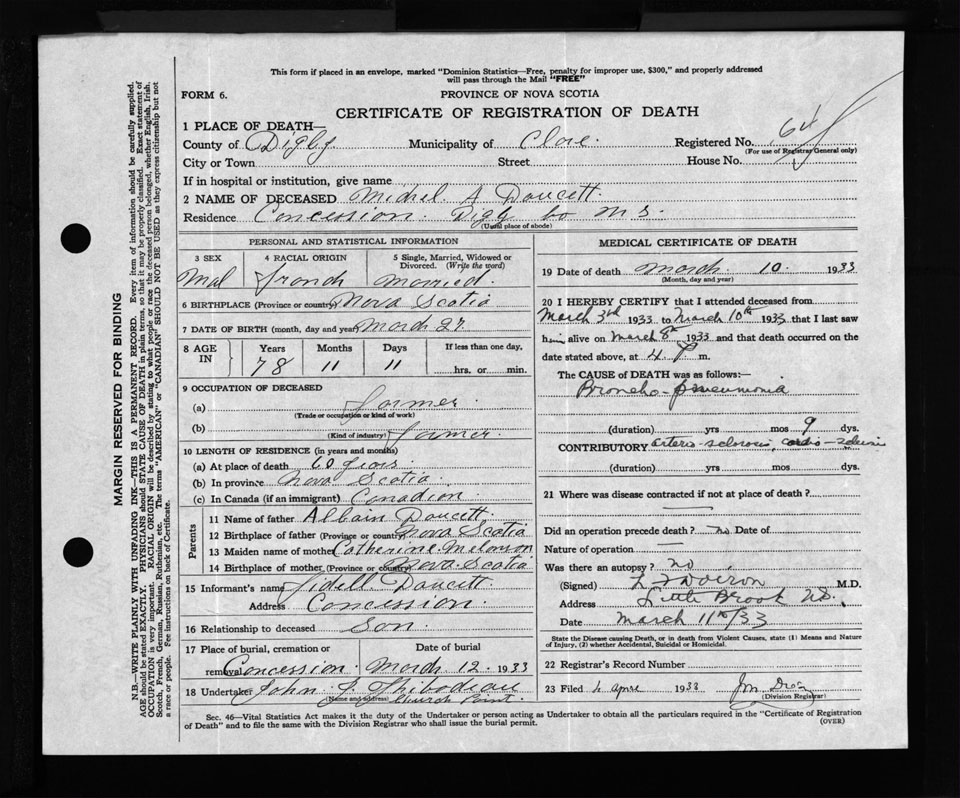 This form if placed in an envelope, marked "Dominion Statistics—Free, penalty for improper use, $300," and properly addressed
will pass through the Mail "FREE"
FORM 6.
PROVINCE OF NOVA SCOTIA
CERTIFICATE OF REGISTRATION OF DEATH
1 PLACE OF DEATH—
County of Digby Municipality of Clare Registered No. 64
(For use of Registrar General only)
City or Town Street House No.
If in hospital or institution, give name
2 NAME OF DECEASED Michel. A Doucett.
Residence Concession. Digg Co N S.
(Usual place of abode)
PERSONAL AND STATISTICAL INFORMATION
3 SEX 4 RACIAL ORIGIN 5 Single, Married, Widowed or
Divorced. (Write the word)
Mal french married.
6 BIRTHPLACE (Province or country) Nova Scotia
7 DATE OF BIRTH (month, day and year) March 27.
8 AGE IN Years Months Days If less than one day,
78 11 11 hrs. or min.
9 OCCUPATION OF DECEASED
(a) farmer.
(Trade or occupation or kind of work)
(b) farmer.
(Kind of industry)
10 LENGTH OF RESIDENCE (in years and months)
(a) At place of death 60 years
(b) In province Nova Scotia.
(c) In Canada (if an immigrant) Canadian.
Parents
11 Name of father Albain Doucett.
12 Birthplace of father (Province or country) Nova Scotia
13 Maiden name of mother Catherine Melanson
14 Birthplace of mother (Province or country) Nova Scotia
15 Informant's name Fidell Doucett.
Address Concession.
16 Relationship to deceased Son.
17 Place of burial, cremation or Date of burial
removal Concession. March 12. 1933
18 Undertaker John J. Thibodeau
(Name and address) Church Point.
MEDICAL CERTIFICATE OF DEATH
19 Date of death March 10. 1933
(Month, day and year)
20 I HEREBY CERTIFY that I attended deceased from
March 3rd 1933 to March 10th 1933 that I last saw
him alive on March 8th 1933 and that death occurred on the
date stated above, at 4 P m.
The CAUSE OF DEATH was as follows:—
Broncho-pneumonia
(duration) yrs mos 9 dys.
CONTRIBUTORY arterio-sclerosis, cardio-
(duration) yrs mos dys.
21 Where was disease contracted if not at place of death?
Did an operation precede death? no Date of
Nature of operation
Was there an autopsy? no
(Signed) Doiron M.D.
Address Little Brook N.S.
Date March 11th/33
State the Disease causing Death, or in death from Violent Causes, state (1) Means and Nature
of Injury, (2) whether Accidental, Suicidal or Homicidal.
22 Registrar's Record Number
23 Filed 4 April 1933
(Division Registrar)
Sec. 46—Vital Statistics Act makes it the duty of the Undertaker or person acting as Undertaker to obtain all the particulars required in the "Certificate of Registration
of Death" and to file the same with the Division Registrar who shall issue the burial permit. (OVER)
MARGIN RESERVED FOR BINDING
N.B.—WRITE PLAINLY WITH UNFADING INK—THIS IS A PERMANENT RECORD. Every item of information should be carefully supplied.
AGE should be stated EXACTLY. PHYSICIANS should STATE CAUSE OF DEATH in plain terms, so that it may be properly classified. Exact statement of
OCCUPATION is very important. RACIAL ORIGIN will be described by stating to what people or race the deceased person belonged, whether English, Irish,
Scotch, French, German, Russian, Ruthenian, etc. The terms "AMERICAN" or "CANADIAN" SHOULD NOT BE USED as they express citizenship but not
a race or people. See instructions on back of Certificate.